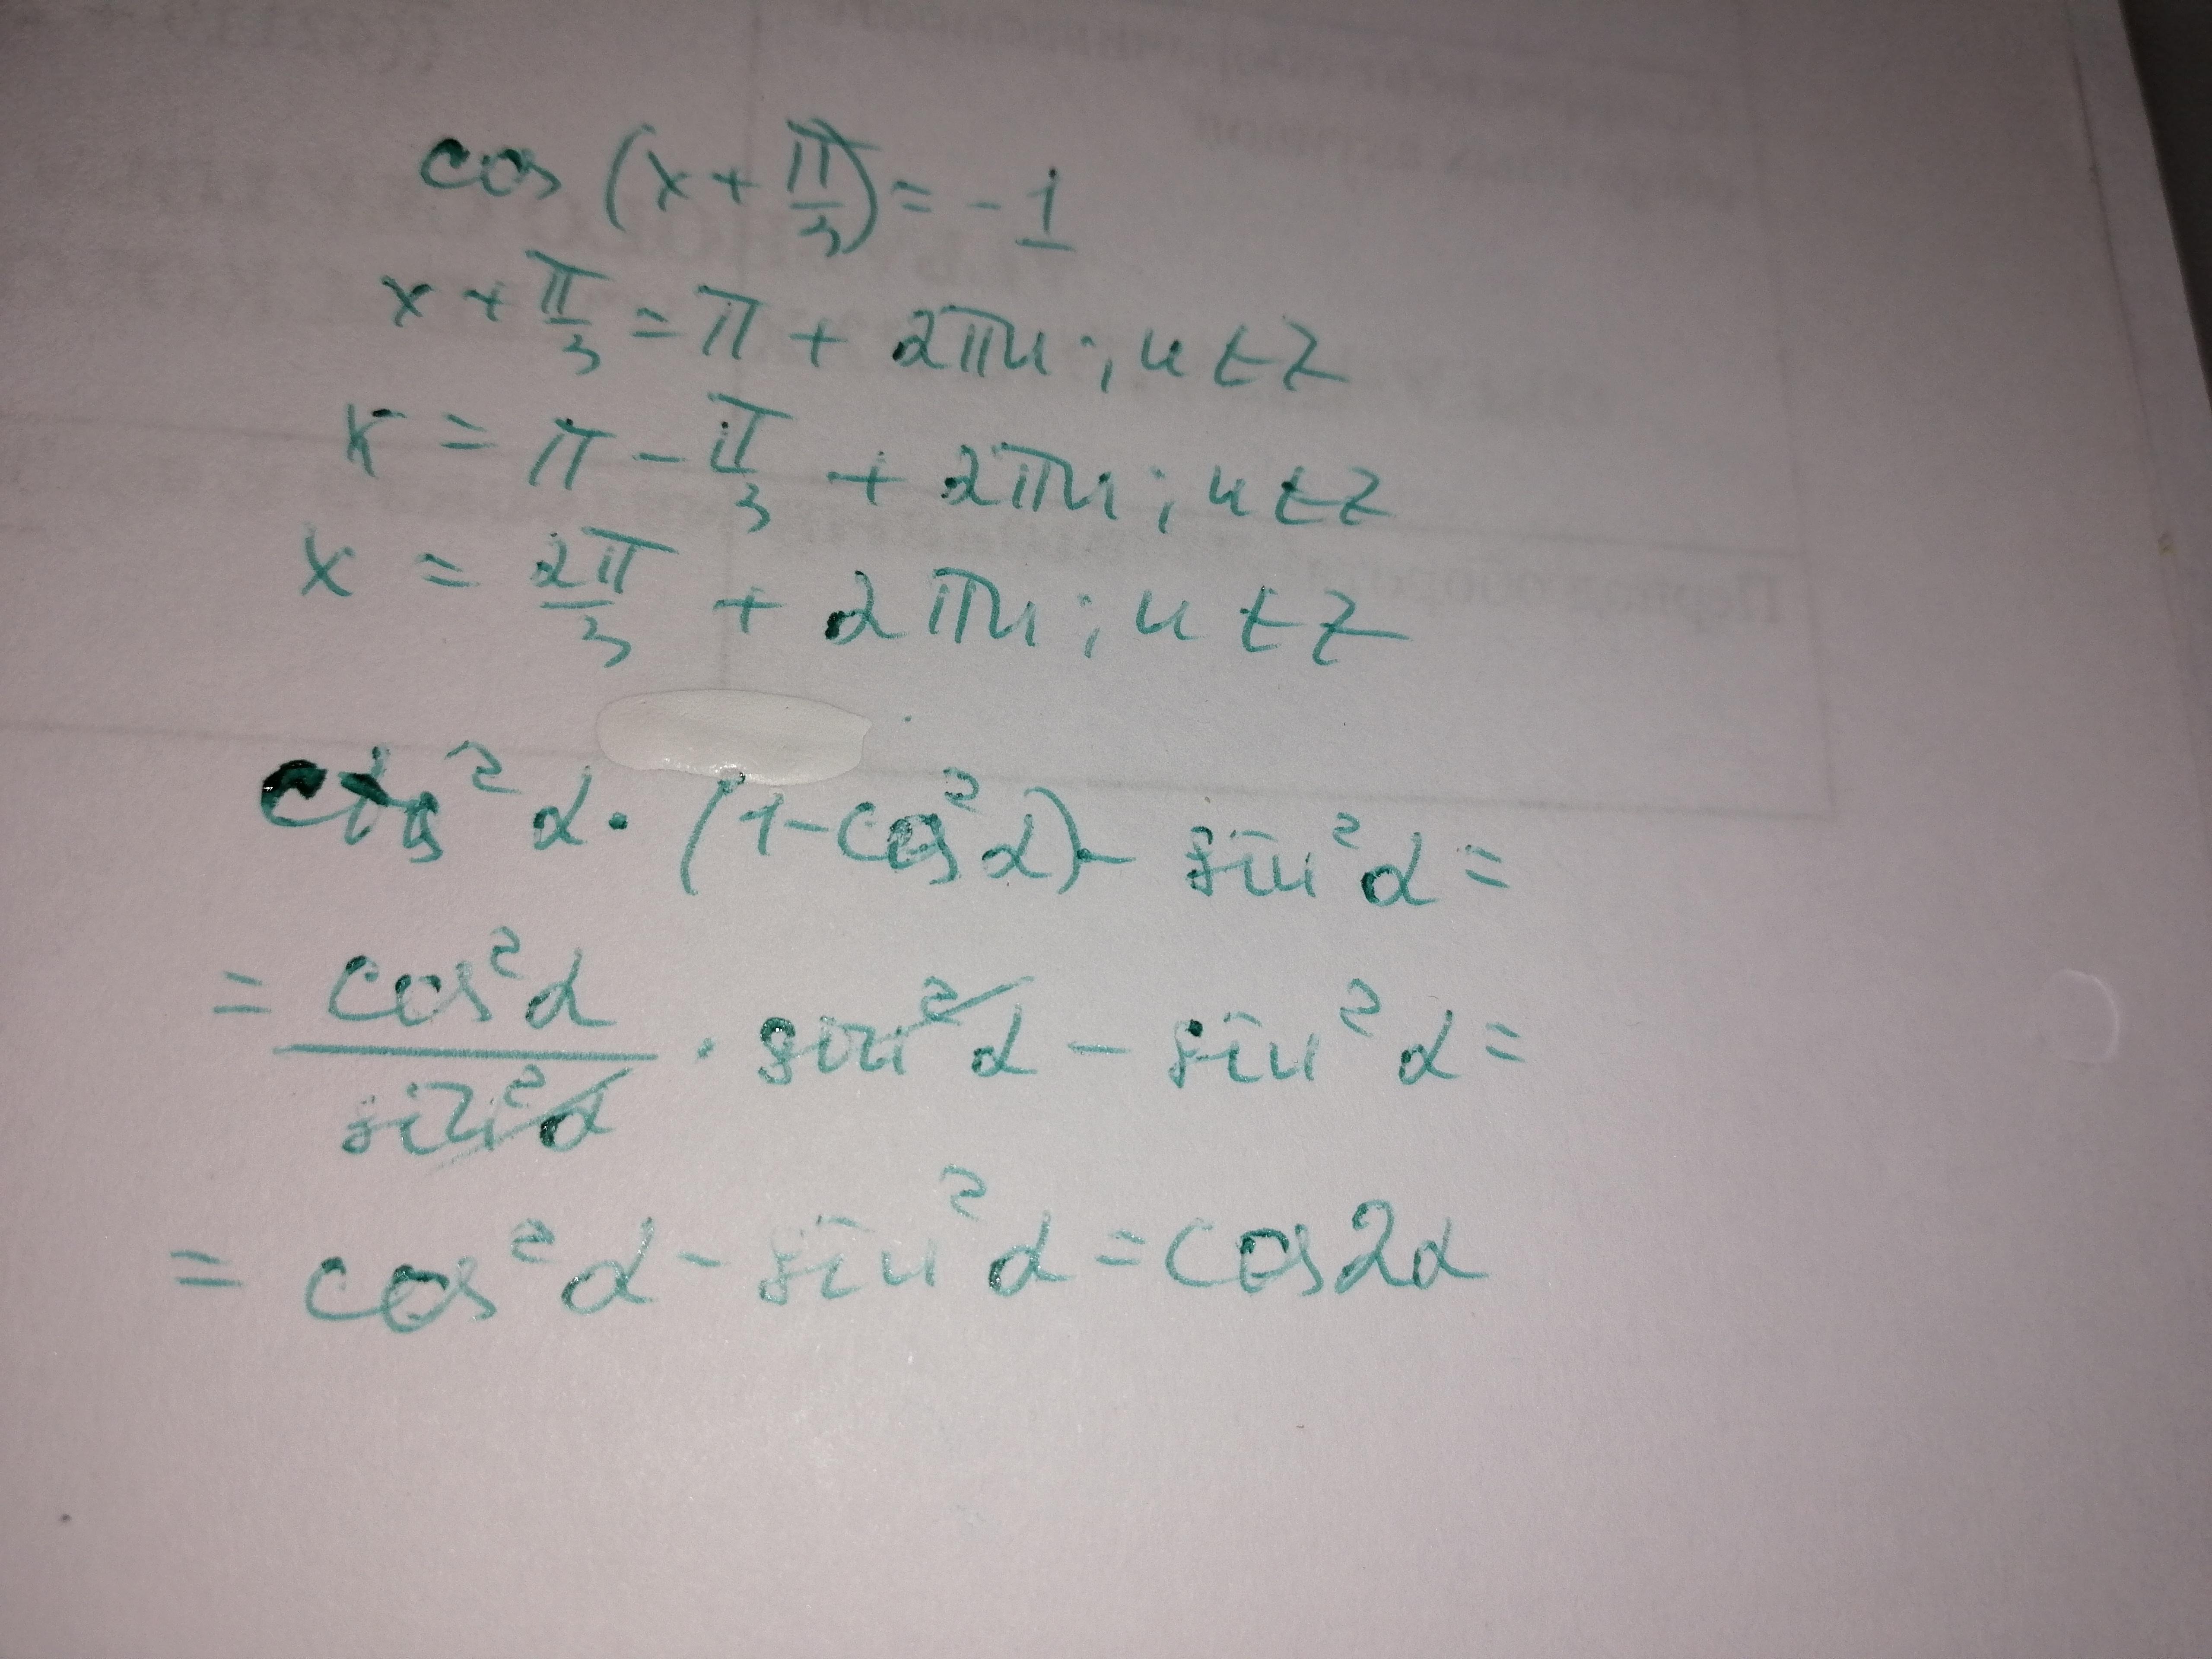 cos (x + π/3) = -1
x + π/3 = π + 2πn; n ∈ Z
x = π - π/3 + 2πn; n ∈ Z
x = 2π/3 + 2πn; n ∈ Z
ctg²α · (1 - cos²α) - sin²α =
= cos²α/sin²α · sin²α - sin²α =
= cos²α - sin²α = cos2α